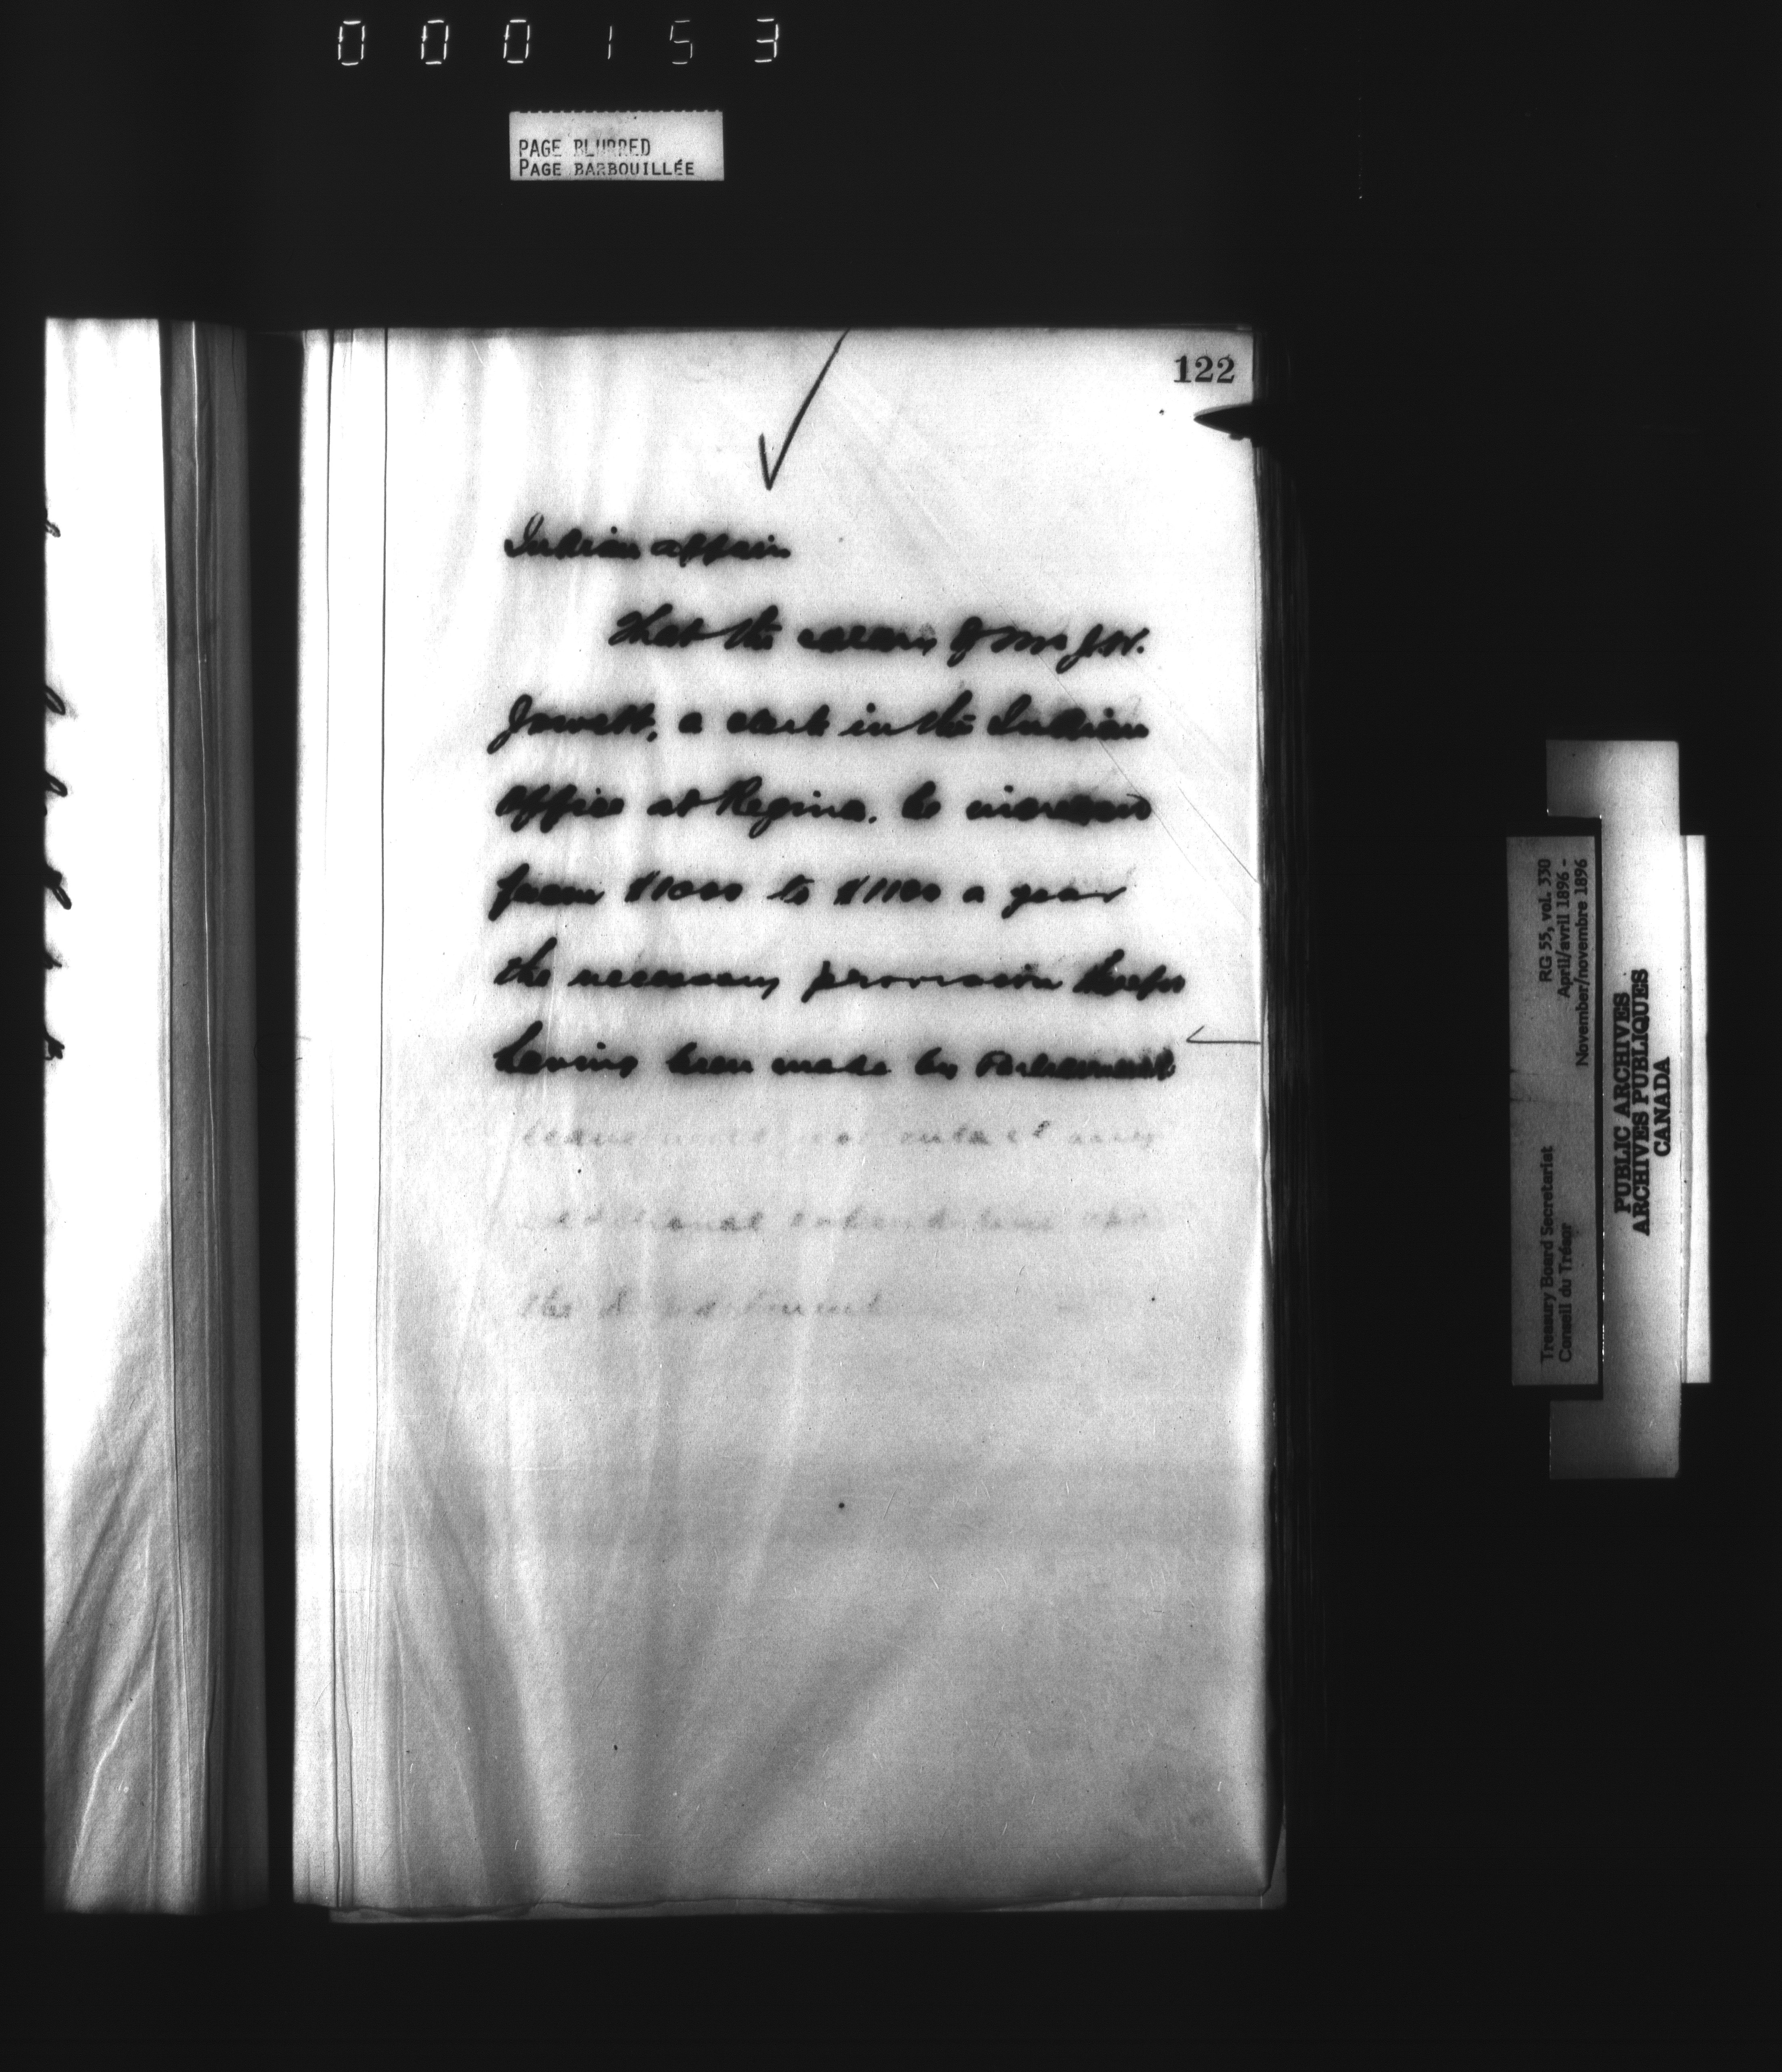 000153
PAGE BLURRED
PAGE BARBOUILLÉE
122
Indian Affairs
That the salary of Mr J.W.
Jowett, a clerk in the Indian
Office at Regina, be increased
from $1000 to $1100 a year
the necessary provision therefor
having been made by Parliament
leave any
additional expenditure
the Department
RG 55, vol. 330
April/avril 1896 -
November/novembre 1896
Treasury Board Secretariat
Conseil du Trésor
PUBLIC ARCHIVES
ARCHIVES PUBLIQUES
CANADA